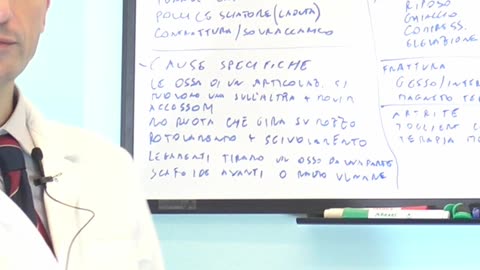 POLLICE SCIATORE (CADUTA)
CONTRATTURA / SOVRACCARICO
CAUSE SPECIFICHE
LE OSSA DI UN ARTICOLAZ. SI
MUOVONO UNA SULL'ALTRA + MOVIM
ACCESSORI
NO RUOTA CHE GIRA SU MOZZO
ROTOLAMENTO + SCIVOLAMENTO
LEGAMENTI TIRANO UN OSSO DA UNA PARTE
SCAFOIDE AVANTI O RADIO VERSO
RIPOSO
GHIACCIO
COMPRESS.
ELEVAZIONE
FRATTURA
GESSO/INTER
MAGNETO TE
ARTRITE
TOGLIERE
TERAPIA